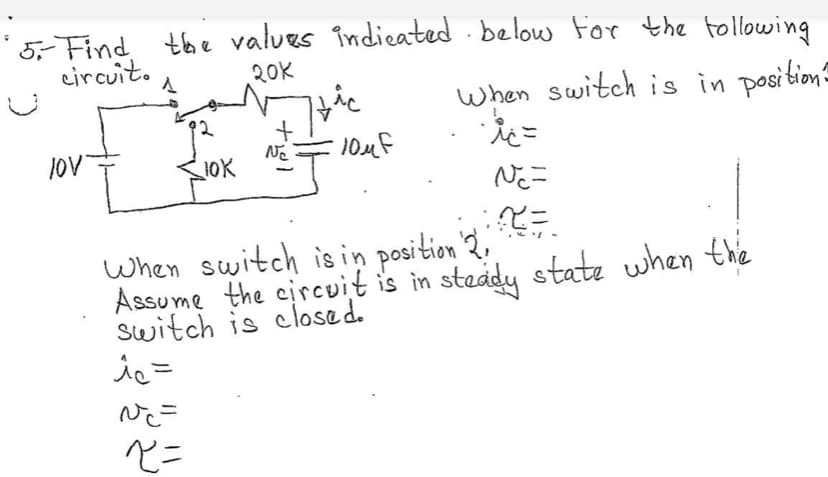 5.- Find the values indicated . below for the following
circuit.
20K
1
ic
When switch is in position 1
2
+
10V
10K
Vc
10μF
ic=
-
Vc=
τ=
When switch is in position 2,
Assume the circuit is in steady state when the
switch is closed.
ic=
Vc=
τ=